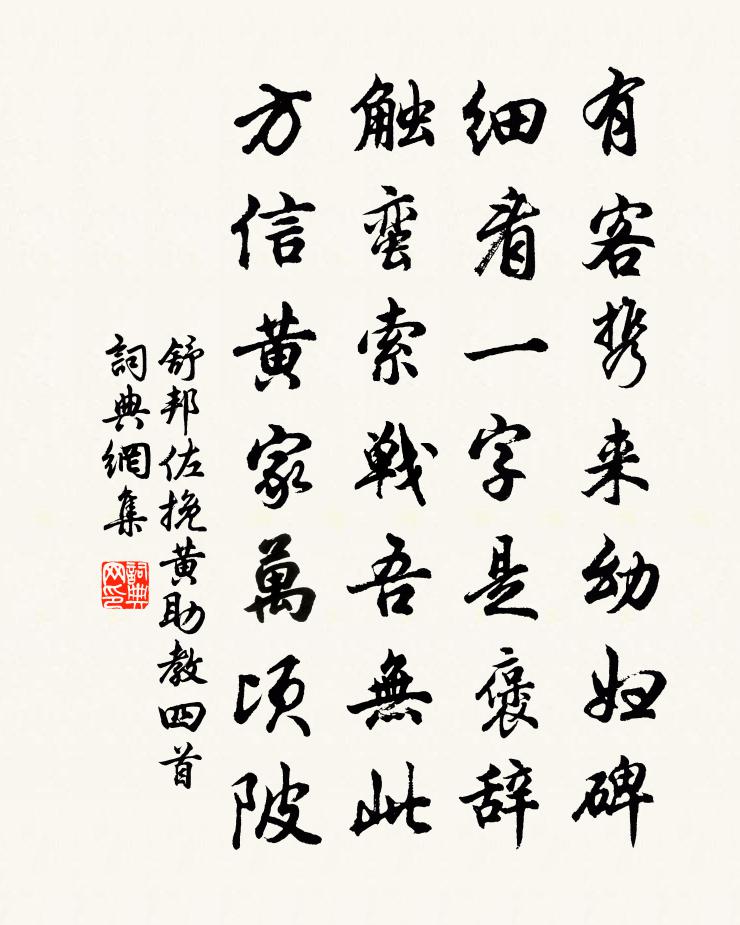 有客携来幼妇碑
细看一字是褒辞
触蛮索战吾無此
方信黄家萬顷陂
舒邦佐挽黄助教四首
詞典網集
詞典网印